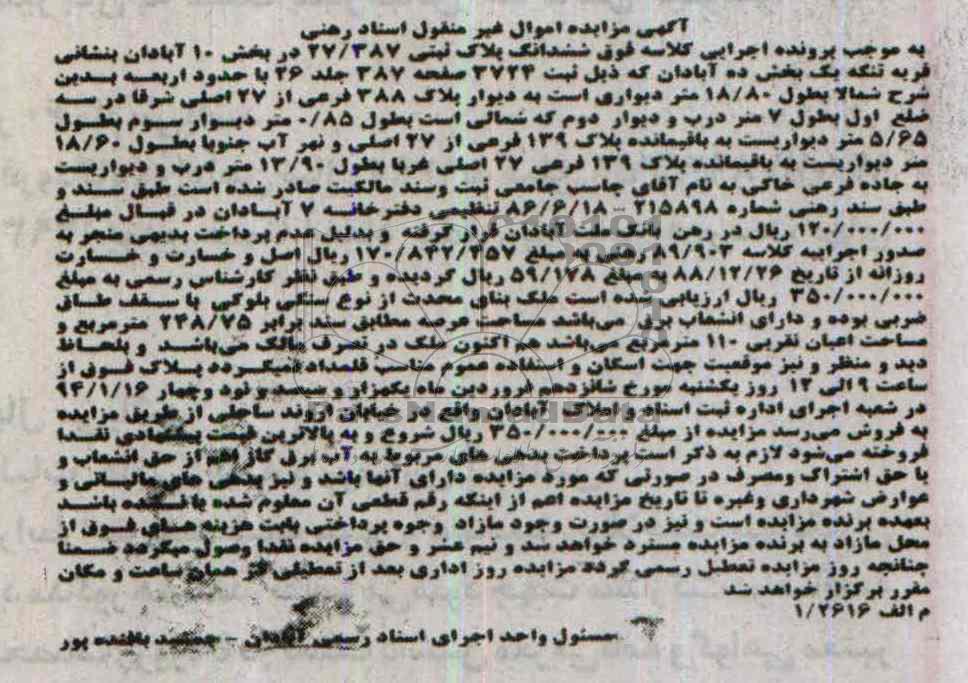 آگهی مزایده اموال غیر منقول اسناد رهنی
به موجب پرونده اجرایی کلاسه فوق ششدانگ پلاک ثبتی ۲۷/۳۸۷ در بخش ۱۰ آبادان بنشانی
قریه تنگه یک بخش ده آبادان که ذیل ثبت ۳۷۲۴ صفحه ۳۸۷ جلد ۲۶ با حدود اربعه بدین
شرح شمالا بطول ۱۸/۸۰ متر دیواری است به دیوار پلاک ۳۸۸ فرعی از ۲۷ اصلی شرقا در سه
ضلع اول بطول ۷ متر درب و دیوار دوم که شمالی است بطول ۰/۸۵ متر دیوار سوم بطول
۵/۶۵ متر دیواریست به باقیمانده پلاک ۱۳۹ فرعی از ۲۷ اصلی و نهر آب جنوبا بطول ۱۸/۶۰
متر دیواریست به باقیمانده پلاک ۱۳۹ فرعی ۲۷ اصلی غربا بطول ۱۳/۹۰ متر درب و دیواریست
به جاده فرعی خاکی به نام آقای جاسب جامعی ثبت وسند مالکیت صادر شده است طبق سند و
طبق سند رهنی شماره ۲۱۵۸۹۸ – ۸۶/۶/۱۸ تنظیمی دفترخانه ۷ آبادان در قبال مبلغ
۱۲۰/۰۰۰/۰۰۰ ریال در رهن بانک ملت آبادان قرار گرفته و بدلیل عدم پرداخت بدیهی منجر به
صدور اجراییه کلاسه ۸۹/۹۰۳ رهنی به مبلغ ۱۷۰/۸۴۲/۲۵۷ ریال اصل و خسارت و خسارت
روزانه از تاریخ ۸۸/۱۲/۲۶ به مبلغ ۵۹/۱۷۸ ریال گردیده و طبق نظر کارشناس رسمی به مبلغ
۳۵۰/۰۰۰/۰۰۰ ریال ارزیابی شده است ملک بنای محدث از نوع سنگی بلوکی با سقف طاق
ضربی بوده و دارای انشعاب برق می‌باشد مساحت عرصه مطابق سند برابر ۲۴۸/۷۵ مترمربع و
مساحت اعیان تقریبی ۱۱۰ مترمربع می‌باشد هم اکنون ملک در تصرف مالک می‌باشد و بلحاظ
دید و منظر و نیز موقعیت جهت اسکان و استفاده عموم مناسب قلمداد میگردد پلاک فوق از
ساعت ۹ الی ۱۲ روز یکشنبه مورخ شانزدهم فروردین ماه یکهزار و سیصد و نود وچهار ۹۴/۱/۱۶
در شعبه اجرای اداره ثبت اسناد و املاک آبادان واقع در خیابان اروند ساحلی از طریق مزایده
به فروش می‌رسد مزایده از مبلغ ۳۵۰/۰۰۰/۰۰۰ ریال شروع و به بالاترین قیمت پیشنهادی نقدا
فروخته می‌شود لازم به ذکر است پرداخت بدهی های مربوط به آب برق گاز اعم از حق انشعاب و
یا حق اشتراک ومصرف در صورتی که مورد مزایده دارای آنها باشد و نیز بدهی های مالیاتی و
عوارض شهرداری وغیره تا تاریخ مزایده اعم از اینکه رقم قطعی آن معلوم شده یا نشده باشد
بعهده برنده مزایده است و نیز در صورت وجود مازاد وجوه پرداختی بابت هزینه های فوق از
محل مازاد به برنده مزایده مسترد خواهد شد و نیم عشر و حق مزایده نقدا وصول میگردد ضمنا
چنانچه روز مزایده تعطیل رسمی گردد مزایده روز اداری بعد از تعطیلی در همان ساعت و مکان
مقرر برگزار خواهد شد
م الف ۱/۲۶۱۶
مسئول واحد اجرای اسناد رسمی آبادان – جمشید پور